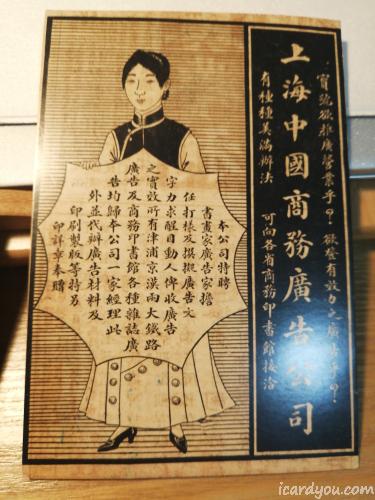 寶號欲推廣營業乎？欲登有效力之廣告乎？
上海中國商務廣告公司
有種種美滿辦法
可向各省商務印書館接洽
本公司特聘
書畫家廣告家擔
任打樣及撰擬廣告文
字力求醒目動人俾收廣告
之實效所有津浦京漢兩大鐵路
廣告及商務印書館各種雜誌廣
告均歸本公司一家經理此
外並代辦廣告材料及
印刷製版等特另
印詳章奉贈
icardyou.com